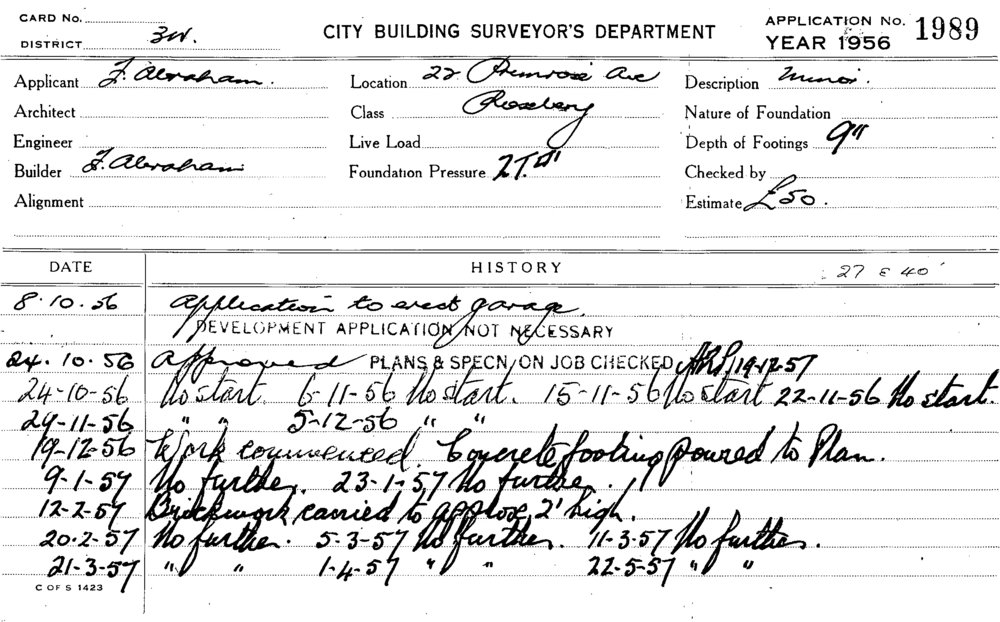 CARD No.
DISTRICT 3W.
CITY BUILDING SURVEYOR'S DEPARTMENT
APPLICATION No. 1989
YEAR 1956
Applicant F. Abraham.
Location 22 Primrose Ave
Description Minor.
Architect
Class Rosebery
Nature of Foundation
Engineer
Live Load
Depth of Footings 9"
Builder F. Abraham
Foundation Pressure 2T.
Checked by
Alignment
Estimate £50.
DATE HISTORY 27 E 40'
8.10.56 Application to erect garage.
DEVELOPMENT APPLICATION NOT NECESSARY
24.10.56 Approved PLANS & SPECN ON JOB CHECKED 19-12-57
24-10-56 No start. 6-11-56 No start. 15-11-56 No start 22-11-56 No start.
29-11-56 " " 5-12-56 " "
19-12-56 Work commenced. Concrete footing poured to Plan.
9-1-57 No further. 23-1-57 No further.
12-2-57 Brickwork carried to approx 2' high.
20.2-57 No further. 5-3-57 No further. 11-3-57 No further.
21-3-57 " " 1-4-57 " " 22-5-57 " "
C OF S 1423